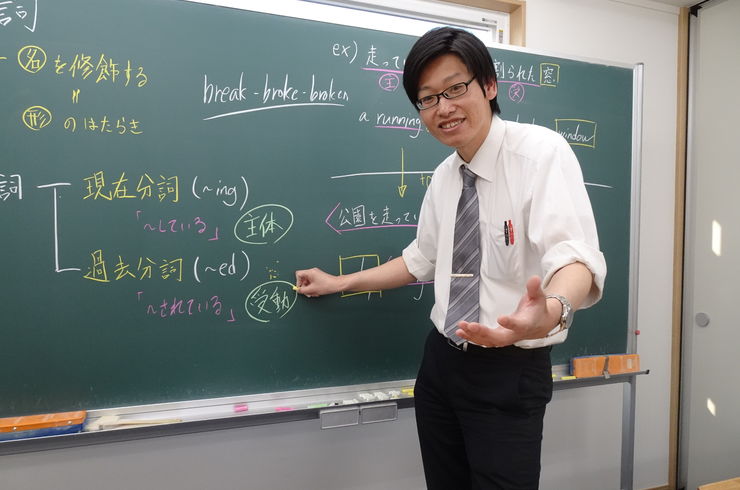 詞
名を修飾する
〃
形のはたらき
break - broke - broken
詞
現在分詞 (~ing)
「~している」
主体
過去分詞 (~ed)
「~されている」
受動
ex) 走って 割られた 窓
主
a running window
公園を走ってい